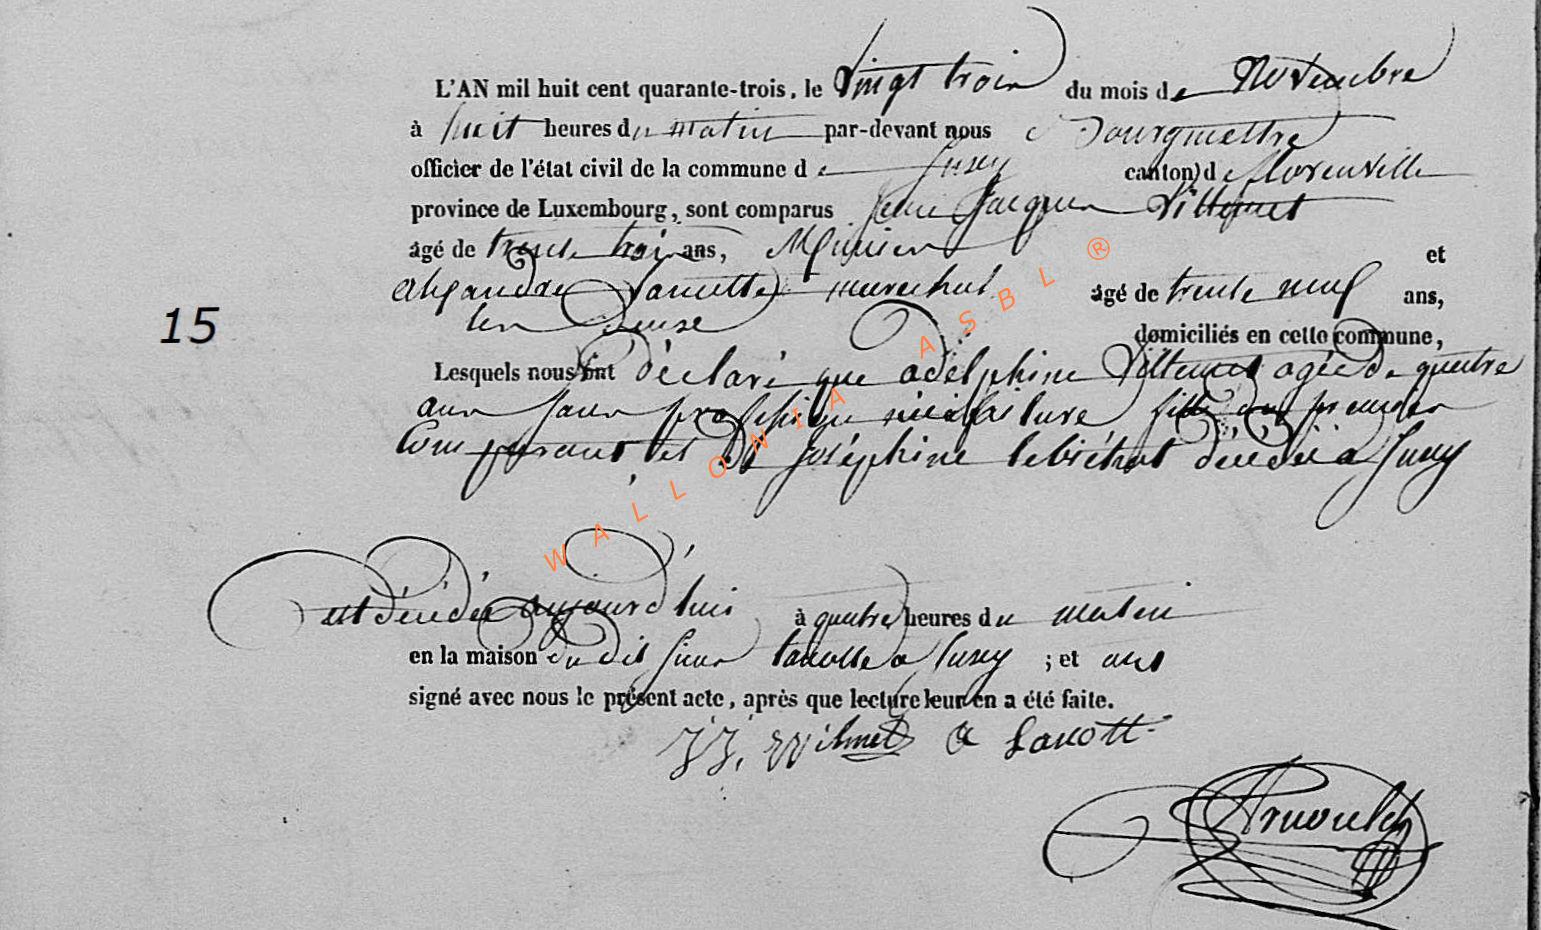 L'AN mil huit cent quarante-trois, le vingt trois du mois de Novembre
à huit heures du matin par-devant nous Bourgmestre
officier de l'état civil de la commune de Suxy canton) de florenville
province de Luxembourg, sont comparus Jean Jacques Vilhmet
âgé de trente trois ans, et
alexandre Lacutte marechal âgé de trente neuf ans,
domiciliés en cette commune,
15
Lesquels nous ont déclaré que adelphine agée de quatre
ans sans profession fille du premier
Comparant et De joséphine décédée a Suxy
est décédée aujourd'hui à quatre heures du matin
en la maison du dit sieur a Suxy ; et ont
signé avec nous le présent acte, après que lecture leur en a été faite.
JJ, Wilmet A Lacott
Arnould
WALLONIA ASBL ®